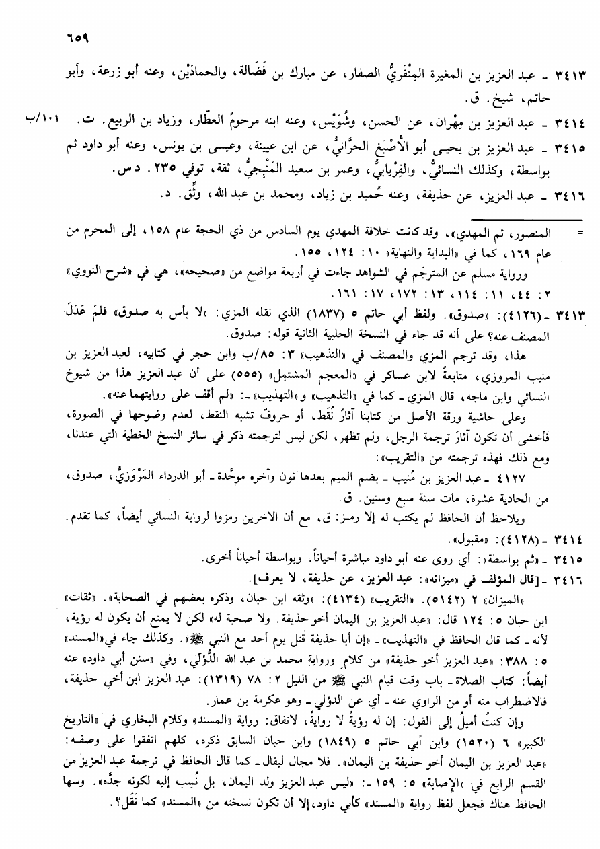 ٦٥٩
٣٤١٣ ـ عبد العزيز بن المغيرة المِنْقَريُّ الصفار، عن مبارك بن فَضَالة، والحمادَيْن، وعنه أبو زرعة، وأبو
حاتم، شيخ. ق.
٣٤١٤ ـ عبد العزيز بن مِهْران، عن الحسن، وشُوَيْس، وعنه ابنه مرحومُ العطّار، وزياد بن الربيع. ت. ١٠١/ب
٣٤١٥ ـ عبد العزيز بن يحيى أبو الأصْبَغ الحَرَّانيُّ، عن ابن عيينة، وعيسى بن يونس، وعنه أبو داود ثم
بواسطة، وكذلك النسائيُّ، والفِرْيابيُّ، وعمر بن سعيد المَنْبِجيُّ، ثقة، توفي ٢٣٥. د س.
٣٤١٦ ـ عبد العزيز، عن حذيفة، وعنه حُميد بن زياد، ومحمد بن عبد الله، وثِّق. د.
= المنصور، ثم المهدي»، وقد كانت خلافة المهدي يوم السادس من ذي الحجة عام ١٥٨، إلى المحرم من
عام ١٦٩، كما في «البداية والنهاية» ١٠: ١٢٤، ١٥٥.
ورواية مسلم عن المترجَم في الشواهد جاءت في أربعة مواضع من «صحيحه»، هي في «شرح النووي»
٢: ٤٤، ١١: ١١٤، ١٣: ١٧٢، ١٧: ١٦١.
٣٤١٣ ـ (٤١٢٦): «صدوق». ولفظ أبي حاتم ٥ (١٨٣٧) الذي نقله المزي: «لا بأس به صدوق» فلمَ عَدَلَ
المصنف عنه؟ على أنه قد جاء في النسخة الحلبية الثانية قوله: صدوق.
هذا، وقد ترجم المزي والمصنف في «التذهيب» ٣: ٨٥/ب وابن حجر في كتابيه، لعبد العزيز بن
منيب المروزي، متابعةً لابن عساكر في «المعجم المشتمل» (٥٥٥) على أن عبد العزيز هذا من شيوخ
النسائي وابن ماجه، قال المزي ـ كما في «التذهيب» و«التهذيب» ـ: «لم أقف على روايتهما عنه».
وعلى حاشية ورقة الأصل من كتابنا آثارُ نُقَط، أو حروف تشبه النقط، لعدم وضوحها في الصورة،
فأخشى أن تكون آثارَ ترجمة الرجل، ولم تظهر، لكن ليس لترجمته ذكر في سائر النسخ الخطية التي عندنا،
ومع ذلك فهذه ترجمته من «التقريب»:
٤١٢٧ ـ عبد العزيز بن مُنيب ـ بضم الميم بعدها نون وآخره موحَّدة ـ أبو الدرداء المَرْوَزيُّ، صدوق،
من الحادية عشرة، مات سنة سبع وستين. ق.
ويلاحظ أن الحافظ لم يكتب له إلا رمز: ق، مع أن الآخرين رمزوا لرواية النسائي أيضاً، كما تقدم.
٣٤١٤ ـ (٤١٢٨): «مقبول».
٣٤١٥ ـ «ثم بواسطة»: أي روى عنه أبو داود مباشرة أحياناً. وبواسطة أحياناً أخرى.
٣٤١٦ ـ [قال المؤلف في «ميزانه»: عبد العزيز، عن حذيفة، لا يعرف].
«الميزان» ٢ (٥١٤٢). «التقريب» (٤١٣٤): «وثقه ابن حبان، وذكره بعضهم في الصحابة». «ثقات»
ابن حبان ٥: ١٢٤ قال: «عبد العزيز بن اليمان أخو حذيفة. ولا صحبة له» لكن لا يمتنع أن يكون له رؤية،
لأنه ـ كما قال الحافظ في «التهذيب» ـ «إن أبا حذيفة قتل يوم أحد مع النبي ﷺ». وكذلك جاء في «المسند»
٥: ٣٨٨: «عبد العزيز أخو حذيفة» من كلام ورواية محمد بن عبد الله الدُّؤَلي، وفي «سنن أبي داود» عنه
أيضاً: كتاب الصلاة ـ باب وقت قيام النبي ﷺ من الليل ٢: ٧٨ (١٣١٩): عبد العزيز ابن أخي حذيفة،
فالاضطراب منه أو من الراوي عنه ـ أي عن الدؤلي ـ وهو عكرمة بن عمار.
وإن كنتُ أميلُ إلى القول: إن له رؤيةً لا روايةً، لاتفاق: رواية «المسند» وكلام البخاري في «التاريخ
الكبير» ٦ (١٥٢٠) وابن أبي حاتم ٥ (١٨٤٩) وابن حبان السابق ذكره، كلهم اتفقوا على وصفه:
«عبد العزيز بن اليمان أخو حذيفة بن اليمان». فلا مجال ليقال ـ كما قال الحافظ في ترجمة عبد العزيز من
القسم الرابع في «الإصابة» ٥: ١٥٩ ـ: «ليس عبد العزيز ولد اليمان، بل نُسِب إليه لكونه جدَّه». وسها
الحافظ هناك فجعل لفظ رواية «المسند» كأبي داود، إلا أن تكون نسخته من «المسند» كما نَقَل؟.